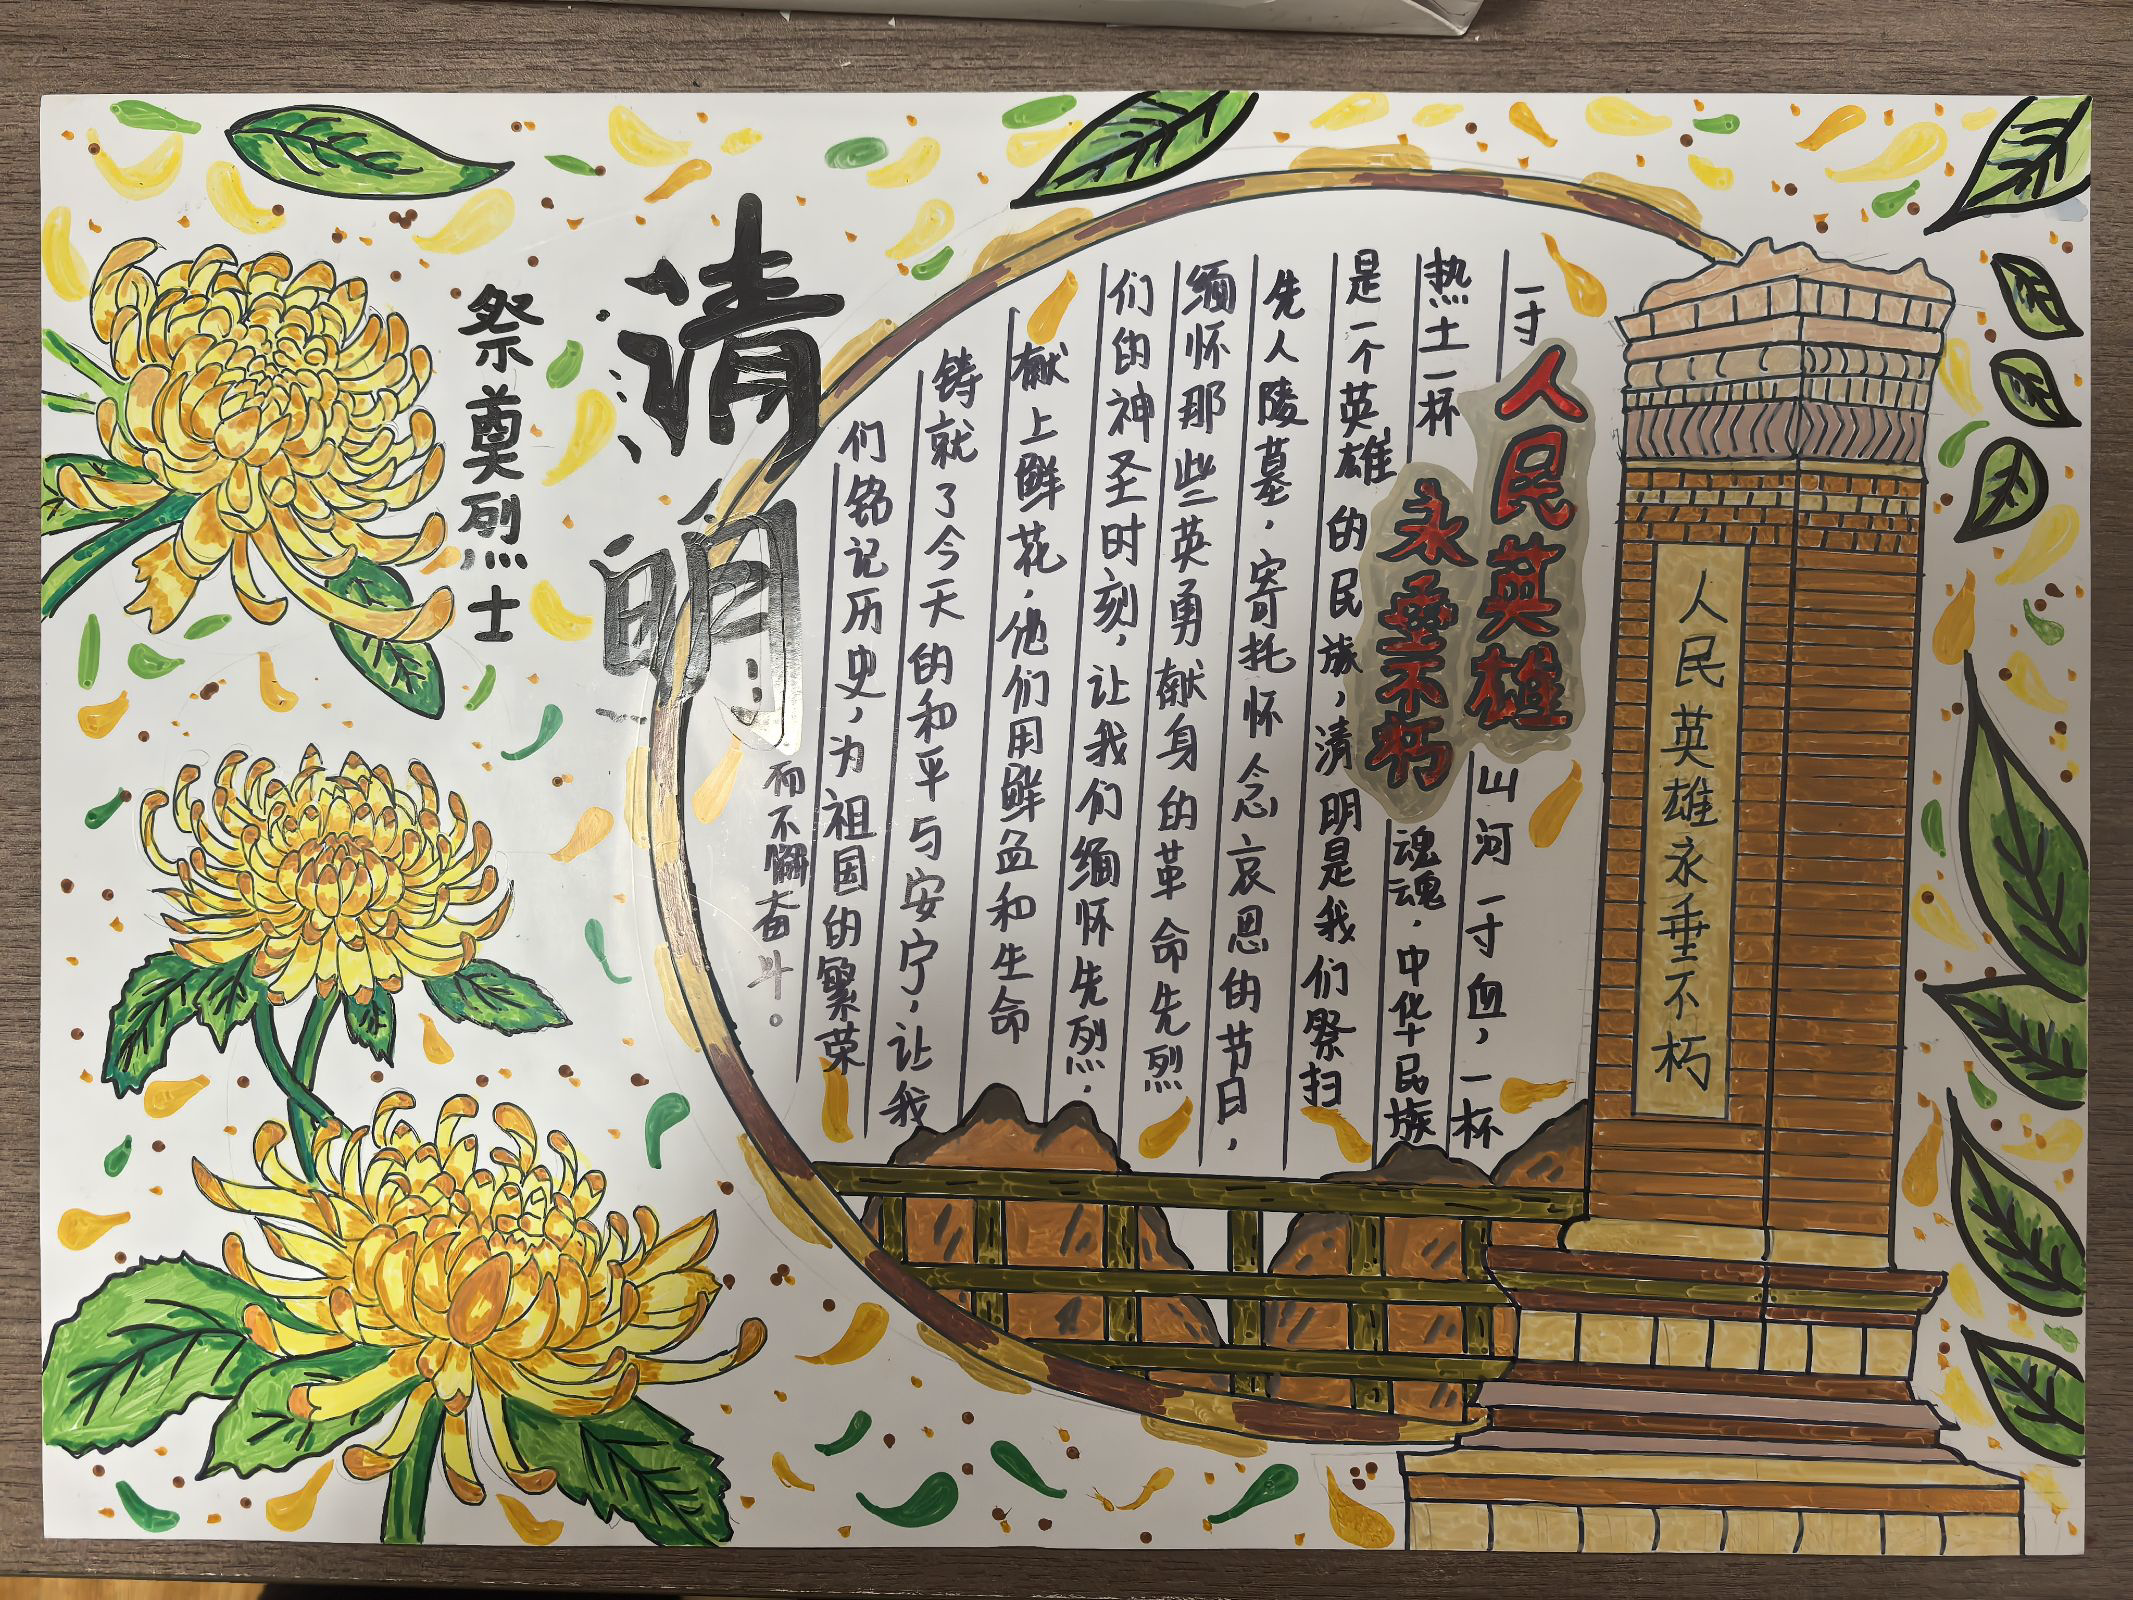 清明
祭奠烈士
人民英雄
永垂不朽
一寸山河一寸血，一杯
热土一杯魂魂，中华民族
是一个英雄的民族，清明是我们祭扫
先人陵墓，寄托怀念哀思的节日，
缅怀那些英勇献身的革命先烈
们的神圣时刻，让我们缅怀先烈，
献上鲜花，他们用鲜血和生命
铸就了今天的和平与安宁，让我
们铭记历史，为祖国的繁荣
而不懈奋斗。
人民英雄永垂不朽